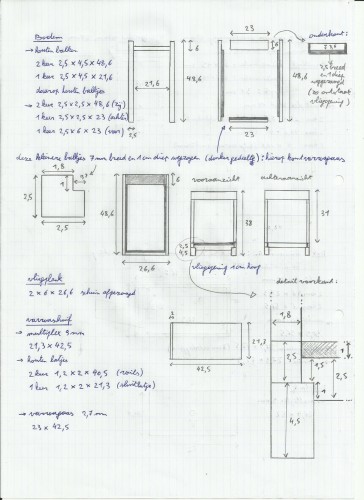 Bodem
→ houten balken
2 keer 2,5 x 4,5 x 48,6
1 keer 2,5 x 4,5 x 21,6
daarop houten balkjes
→ 2 keer 2,5 x 2,5 x 48,6 (zij)
1 keer 2,5 x 2,5 x 23 (achter)
1 keer 2,5 x 6 x 23 (voor)
2,5
21,6
6
48,6
23
6
48,6
23
onderkant:
2,5 breed
en 1 diep
uitgezaagd
vliegopening)
deze kleinere balkjes 7 mm breed en 1 cm diep uitgezaagd (donker gedeelte): hierop komt varroagaas
1,8
0,7
1
2,5
2,5
6
48,6
26,6
vooraanzicht
38
2,5
4,5
achteraanzicht
31
vliegopening 1 cm hoog
vliegplank
2 x 6 x 26,6 schuin afgezaagd
varroaschuif
→ multiplex 3 mm
21,3 x 42,5
→ houten latjes
2 keer 1,2 x 2 x 40,5
1 keer 1,2 x 2 x 21,3
→ varroagaas 2,7 mm
23 x 42,5
3
21,3
42,5
detail voorkant:
1,8
2,5
1
1,5
1
4,5
2,5